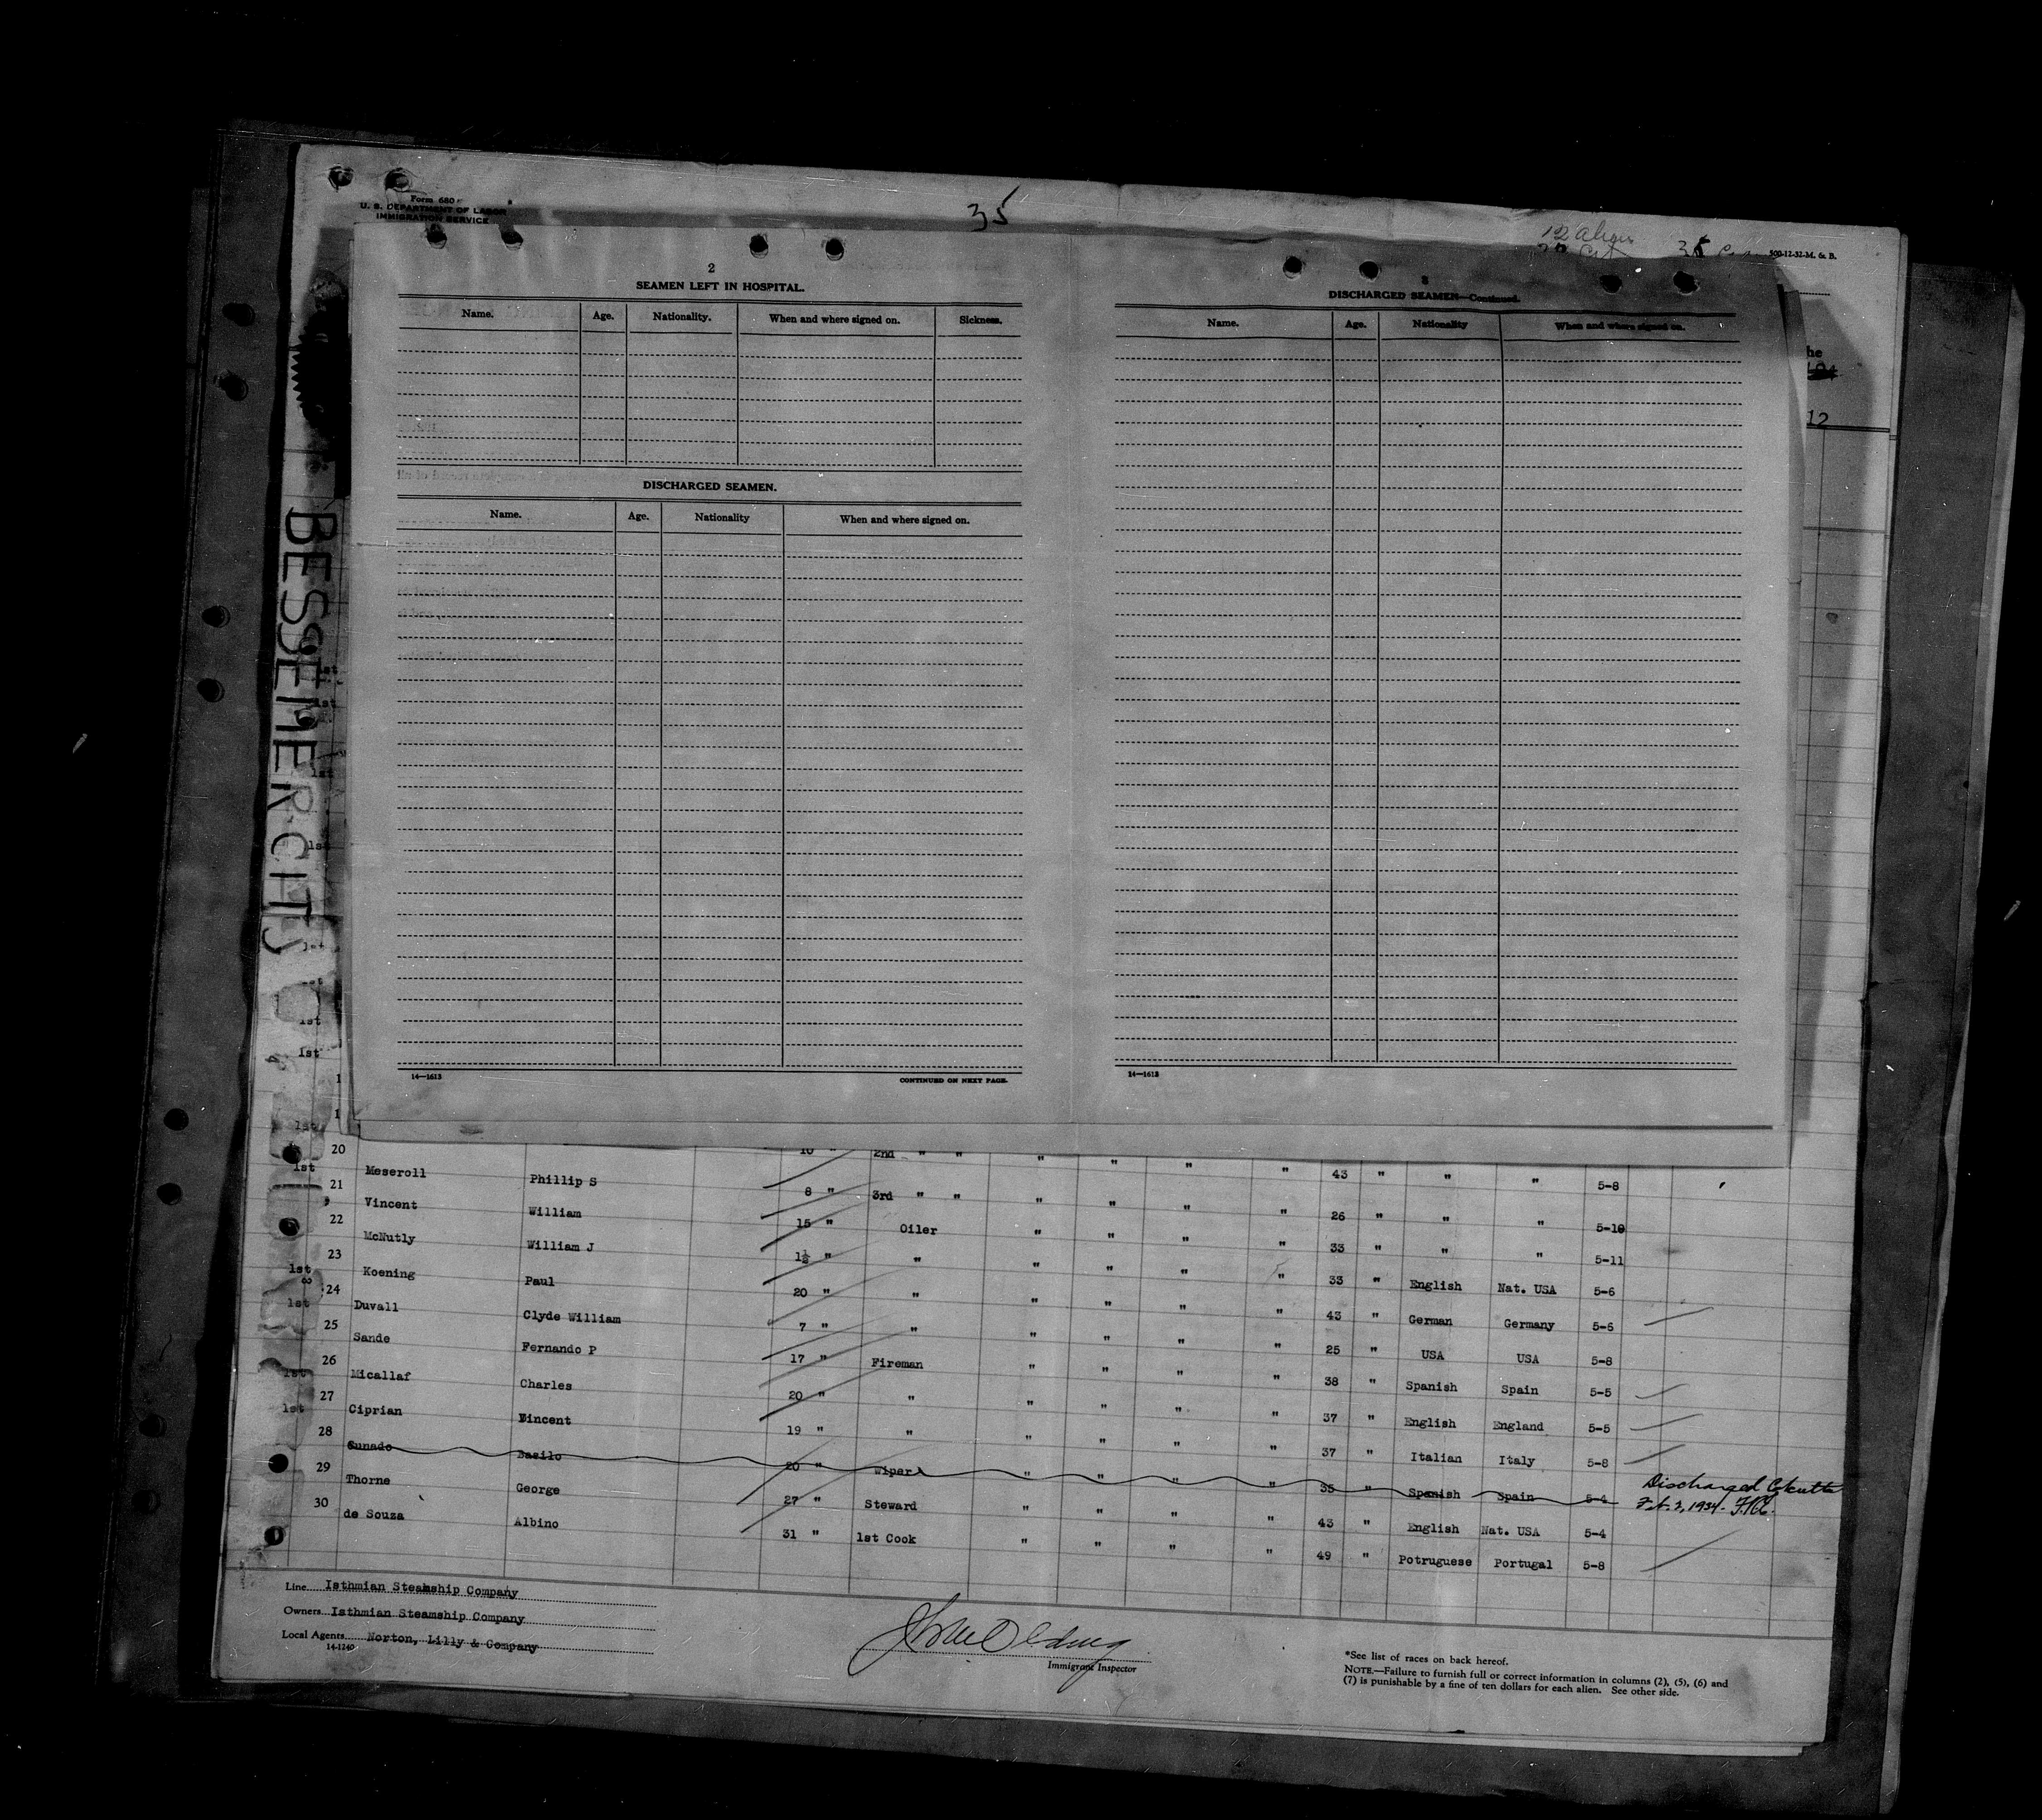 Form 680
U. S. DEPARTMENT OF LABOR
IMMIGRATION SERVICE
35
12 Alien
35
500-12-32-M. & B.
he
12
BESSEMER CITY
2
SEAMEN LEFT IN HOSPITAL.
Name. Age. Nationality. When and where signed on. Sickness.
DISCHARGED SEAMEN.
Name. Age. Nationality When and where signed on.
14—1613 CONTINUED ON NEXT PAGE.
3
DISCHARGED SEAMEN—Continued.
Name. Age. Nationality When and where signed on.
14—1613
10 " 2nd " " " " " " 43 " " " 5-8
20 Meseroll Phillip S 8 " 3rd " " " " " " 26 " " " 5-10
21 Vincent William 15 " Oiler " " " " 33 " " " 5-11
22 McNutly William J 1½ " " " " " " 33 " English Nat. USA 5-6
23 Koening Paul 20 " " " " " " 43 " German Germany 5-6
24 Duvall Clyde William 7 " " " " " " 25 " USA USA 5-8
25 Sande Fernando P 17 " Fireman " " " " 38 " Spanish Spain 5-5
26 Micallaf Charles 20 " " " " " " 37 " English England 5-5
27 Ciprian Vincent 19 " " " " " " 37 " Italian Italy 5-8
28 Gunado Basilo 20 " Wiper " " " " 35 " Spanish Spain 5-4 Discharged Calcutta
Feb. 3, 1934.
29 Thorne George 27 " Steward " " " " 43 " English Nat. USA 5-4
30 de Souza Albino 31 " 1st Cook " " " " 49 " Potruguese Portugal 5-8
Line Isthmian Steamship Company
Owners Isthmian Steamship Company
Local Agents Norton, Lilly & Company
14-1240
Immigrant Inspector
*See list of races on back hereof.
NOTE.—Failure to furnish full or correct information in columns (2), (5), (6) and
(7) is punishable by a fine of ten dollars for each alien. See other side.